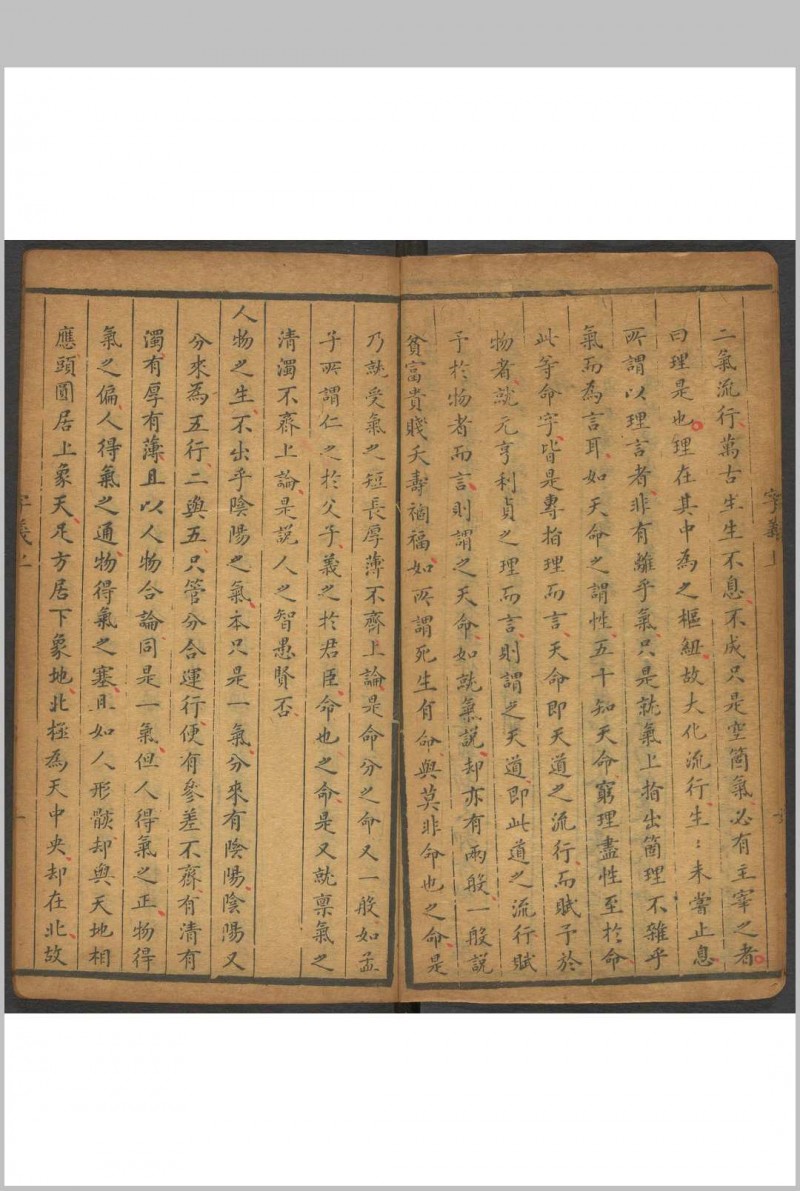 字義上
二氣流行萬古生生不息不成只是空箇氣必有主宰之者
曰理是也理在其中為之樞紐故大化流行生:未嘗止息
所謂以理言者非有離乎氣只是就氣上指出箇理不雜乎
氣而為言耳如天命之謂性五十知天命窮理盡性至於命
此等命字皆是專指理而言天命即天道之流行而賦予於
物者就元亨利貞之理而言則謂之天道即此道之流行賦
予於物者而言則謂之天命如就氣說却亦有兩般一般說
貧富貴賤夭壽禍福如所謂死生有命與莫非命也之命是
乃就受氣之短長厚薄不齊上論是命分之命又一般如孟
子所謂仁之於父子義之於君臣命也之命是又就稟氣之
清濁不齊上論是說人之智愚賢否
人物之生不出乎陰陽之氣本只是一氣分來有陰陽陰陽又
分來為五行二與五只管分合運行便有參差不齊有清有
濁有厚有薄且以人物合論同是一氣但人得氣之正物得
氣之偏人得氣之通物得氣之塞且如人形骸却與天地相
應頭圓居上象天足方居下象地北極為天中央却在北故
字義上